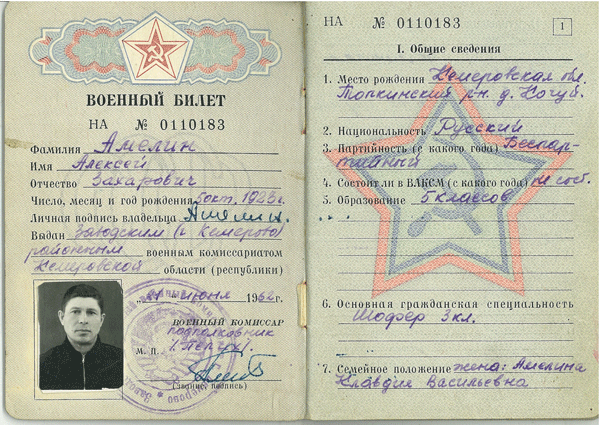 ВОЕННЫЙ БИЛЕТ
НА № 0110183
Фамилия Амелин
Имя Алексей
Отчество Захарович
Число, месяц и год рождения 5 окт. 1923 г.
Личная подпись владельца Амелин.
Выдан Заводским (г. Кемерово)
районным военным комиссариатом
Кемеровской области (республики)
июня 1962 г.
ВОЕННЫЙ КОМИССАР
подполковник
М. П.
(звание, подпись)
НА № 0110183
1
I. Общие сведения
1. Место рождения Кемеровская обл.
Топкинский р-н. д.
2. Национальность Русский
3. Партийность (с какого года) Беспар-
тийный
4. Состоит ли в ВЛКСМ (с какого года) не сост.
5. Образование 5 классов
6. Основная гражданская специальность
Шофёр 3 кл.
7. Семейное положение жена: Амелина
Клавдия Васильевна